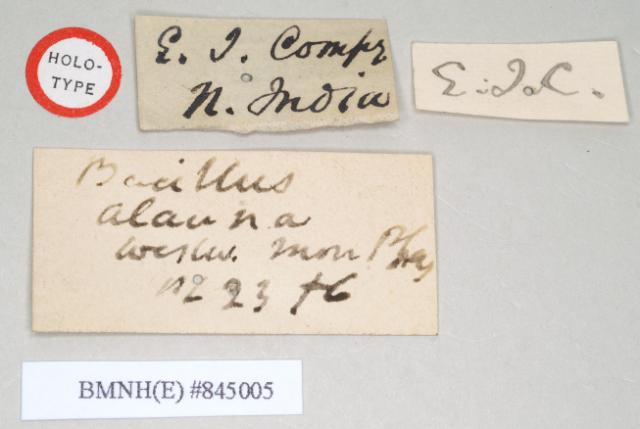 HOLO-
TYPE
E. I. Compy
N. India
E.I.C.
Bacillus
alauna
westw. Mon Phas
BMNH(E) #845005